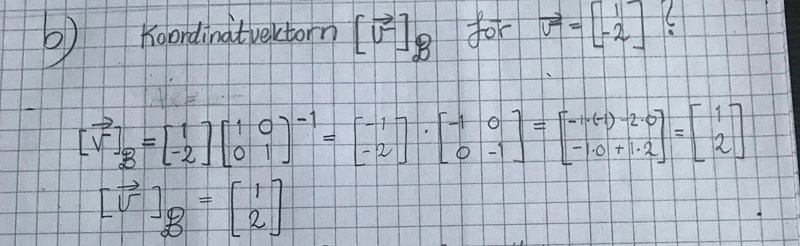 b) Koordinatvektorn [v⃗]_B för v⃗ = [1 -2] ?
[v⃗]_B = [1 -2] [1 0 0 1]^-1 = [-1 -2] · [-1 0 0 -1] = [-1·(-1) -2·0 -1·0 +1·2] = [1 2]
[v⃗]_B = [1 2]